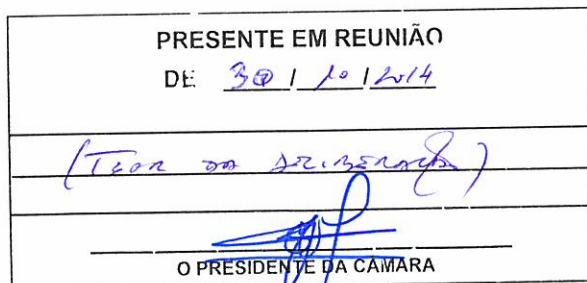 PRESENTE EM REUNIÃO
DE 30 / 10 / 2014
(TEOR DA DELIBERAÇÃO)
O PRESIDENTE DA CÂMARA